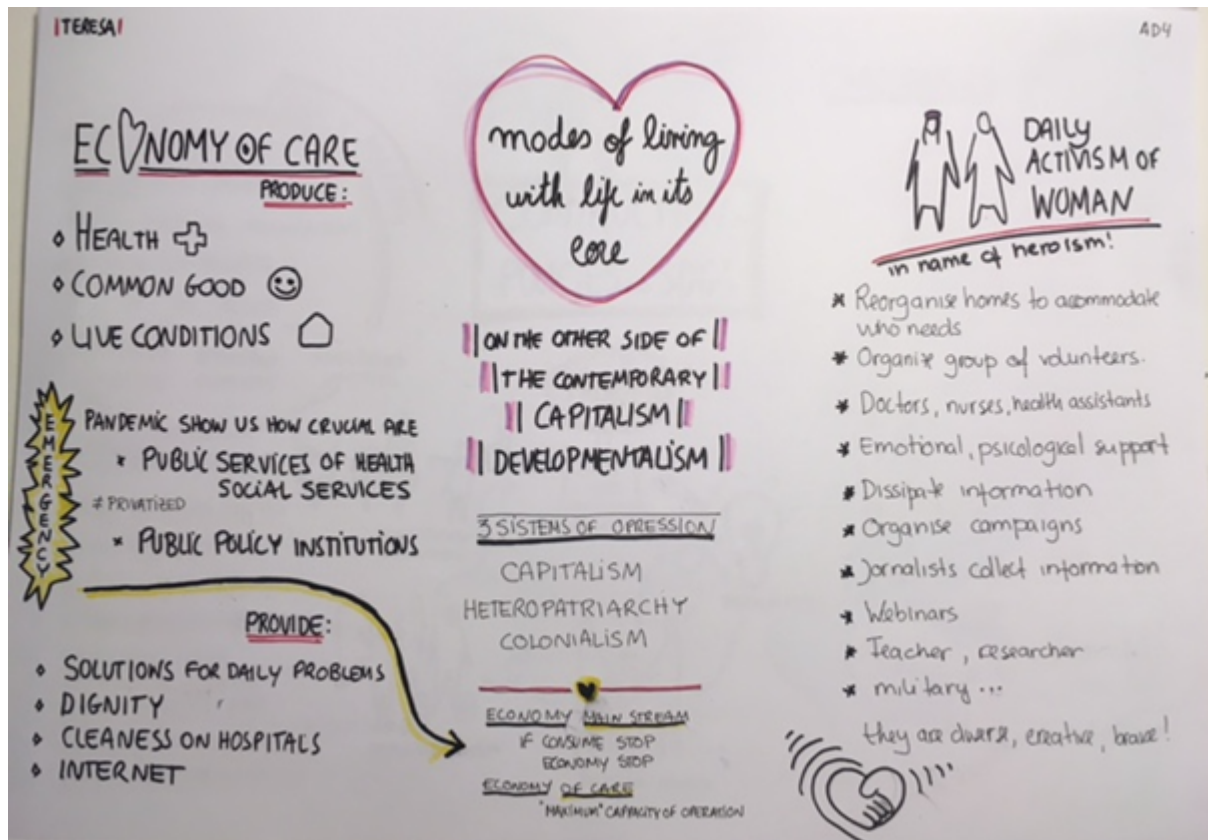 TERESA
AD4
ECONOMY OF CARE
PRODUCE:
HEALTH
COMMON GOOD
LIVE CONDITIONS
EMERGENCY
PANDEMIC SHOW US HOW CRUCIAL ARE
* PUBLIC SERVICES OF HEALTH
SOCIAL SERVICES
≠ PRIVATIZED
* PUBLIC POLICY INSTITUTIONS
PROVIDE:
SOLUTIONS FOR DAILY PROBLEMS
DIGNITY
CLEANESS ON HOSPITALS
INTERNET
modes of living
with life in its
core
ON THE OTHER SIDE OF
THE CONTEMPORARY
CAPITALISM
DEVELOPMENTALISM
3 SISTEMS OF OPRESSION
CAPITALISM
HETEROPATRIARCHY
COLONIALISM
ECONOMY MAIN STREAM
IF CONSUME STOP
ECONOMY STOP
ECONOMY OF CARE
"MAXIMUM" CAPACITY OF OPERATION
DAILY
ACTIVISM OF
WOMAN
in name of heroism!
* Reorganise homes to accommodate
who needs
* Organize group of volunteers.
* Doctors, nurses, health assistants
* Emotional, psicological support
* Dissipate information
* Organise campaigns
* Jornalists collect information
* Webinars
* Teacher, researcher
* military...
they are diverse, creative, brave!